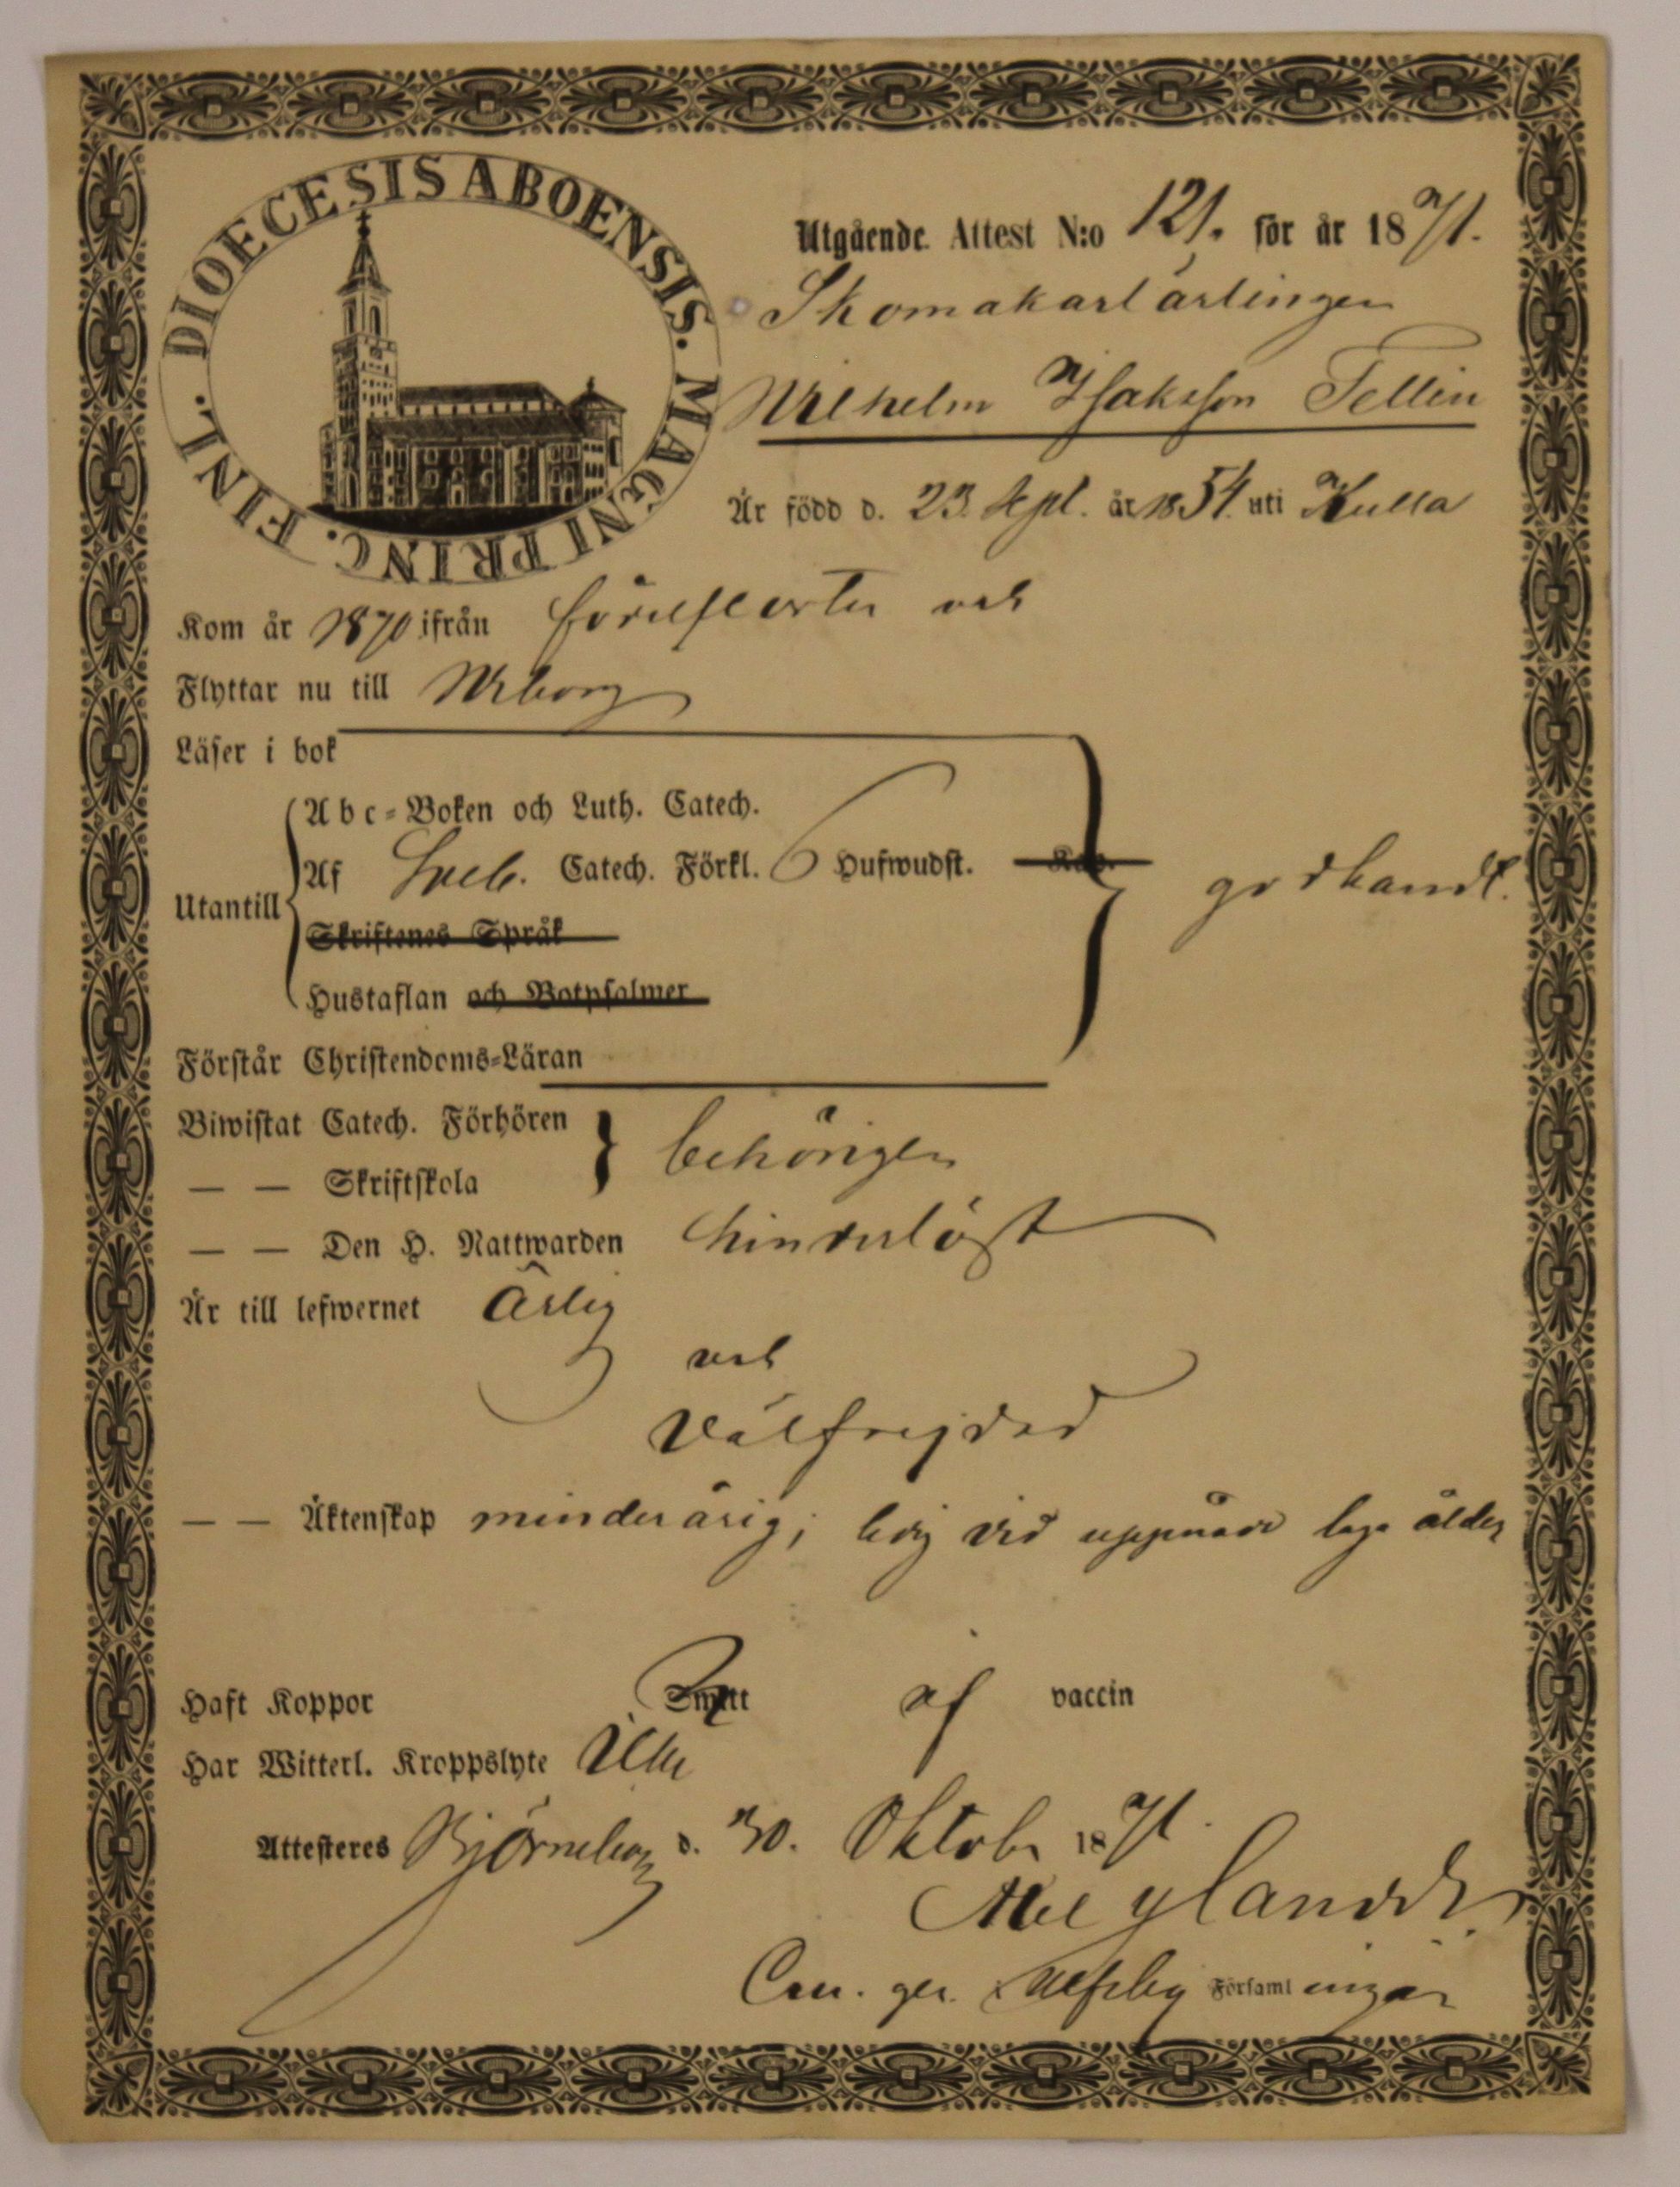 DIOECESIS ABOENSIS. MAGNI PRINC. FINL.
Utgående Attest N:o 121. för år 1871.
Skomakarlärlingen
Wilhelm Isaksson Tellin
Är född d. 23. Sept. år 1854. uti Kulla
Kom år 1870 ifrån och
Flyttar nu till Wiborg
Läser i bok
Abc-Boken och Luth. Catech.
Utantill Af Sveb. Catech. Förkl. 6 Hufwudst. godkändt.
Skriftenes Språk
Hustaflan och Botpsalmer
Förstår Christendoms-Läran
Biwistat Catech. Förhören
— — Skriftskola behörigen
— — Den H. Nattwarden hinderlöst
Är till lefwernet Ärlig
och
Välfrejdad
— — Äktenskap minderårig; vid uppnådd laga ålder
Haft Koppor af vaccin
Har Witterl. Kroppslyte Icke
Attesteres Björneborg d. 30. Oktob. 1871.
Abel Ylander
Ulfsby Församl ingar